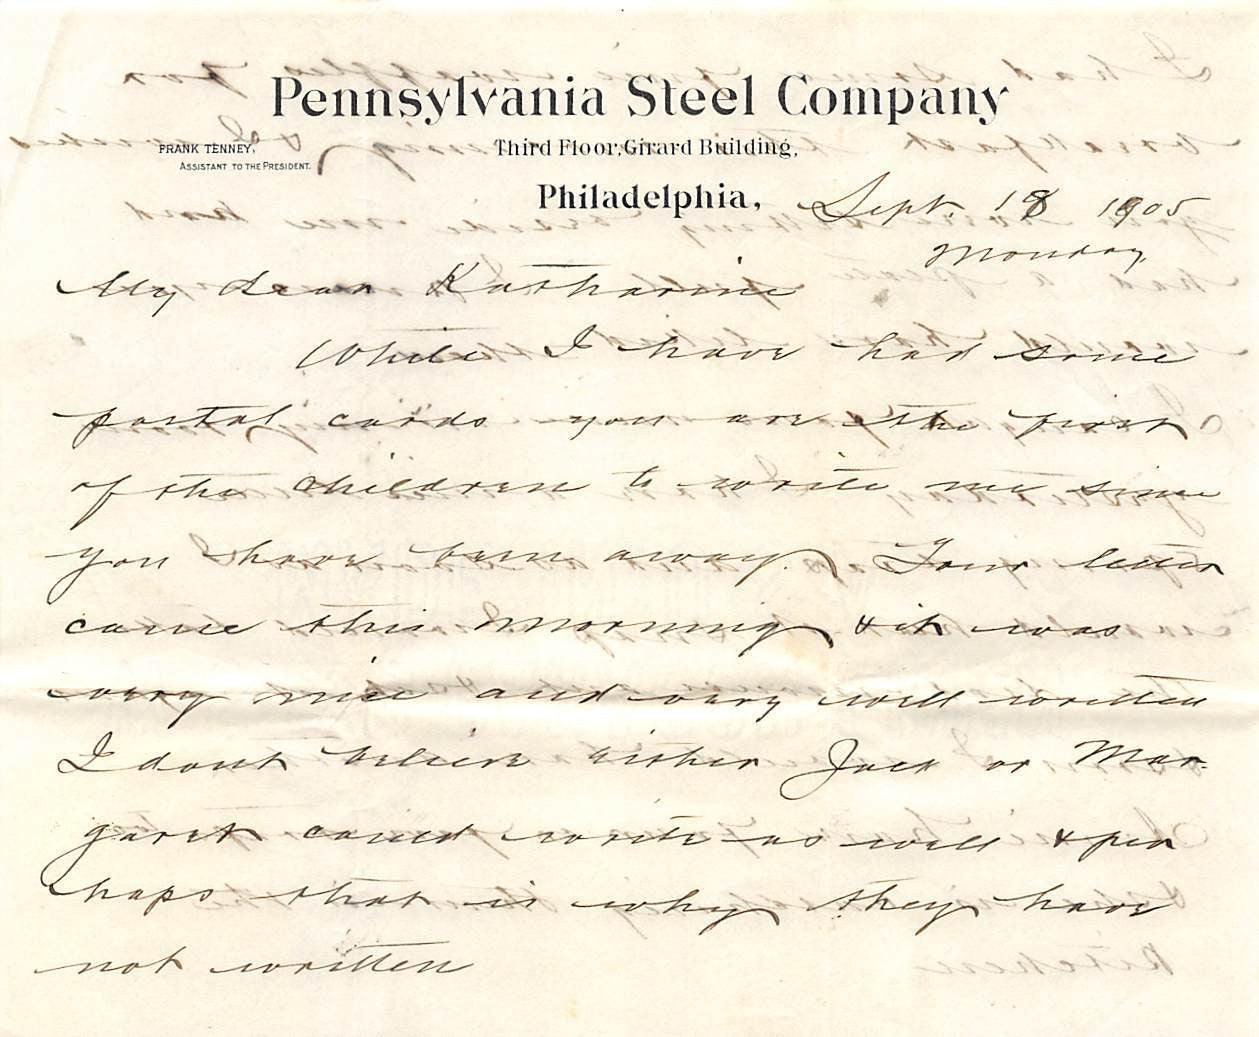 Pennsylvania Steel Company
FRANK TENNEY,
ASSISTANT TO THE PRESIDENT.
Third Floor, Girard Building,
Philadelphia, Sept. 18 1905
Monday
My dear Katharine
While I have had some
postal cards you are the first
of the children to write me since
you have been away. Your letter
came this morning & it was
very nice and very well written
I dont believe either Jack or Mar-
garet could write as well & per
haps that is why they have
not written